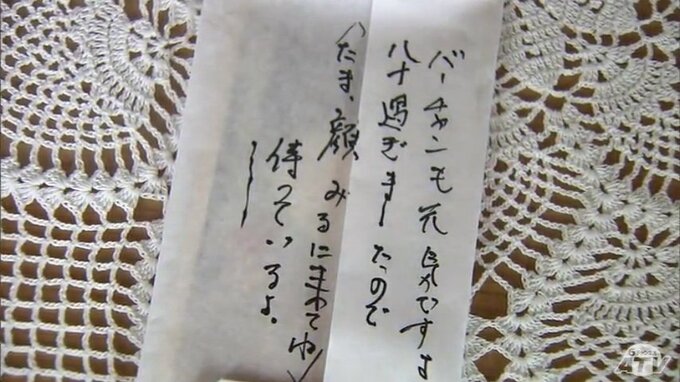 バーチャンも元気ですよ
八十過ぎましたので
(たまに顔みるに来てね)
待っているよ。
Gチャンネル
ATV